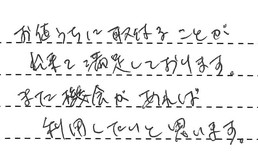 お値うちに取付ることが
出来て満足しております。
また機会があれば
利用したいと思います。